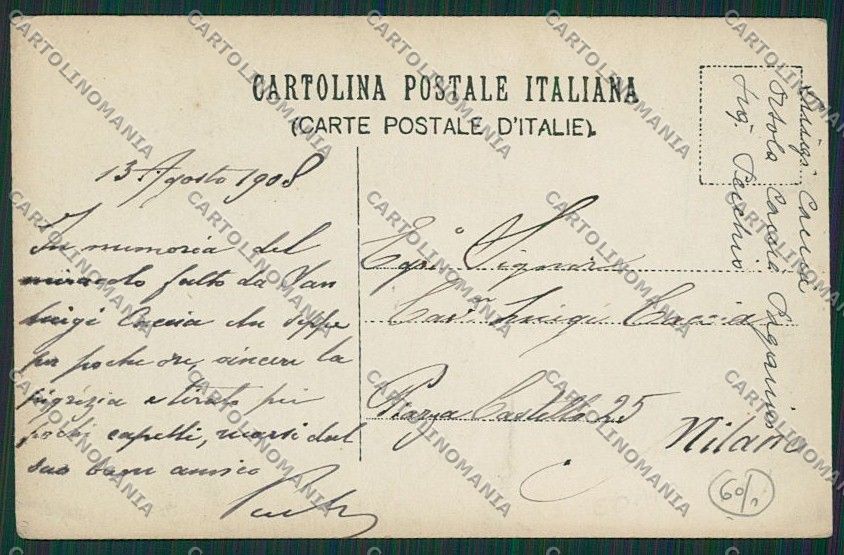 CARTOLINA POSTALE ITALIANA
(CARTE POSTALE D'ITALIE).
13 Agosto 1908
In memoria del
miracolo fatto da San
Luigi Caccia che seppe
per poche ore, vincere la
pigrizia e tirato pei
pochi capelli, morsi dal
suo buon amico
Egr.º Signor
Cavr Luigi Caccia
Piazza Castello 25
Milano
Luigi Caccia
Ortola Caccia
Sig. Pacchio
60/
CARTOLINOMANIA